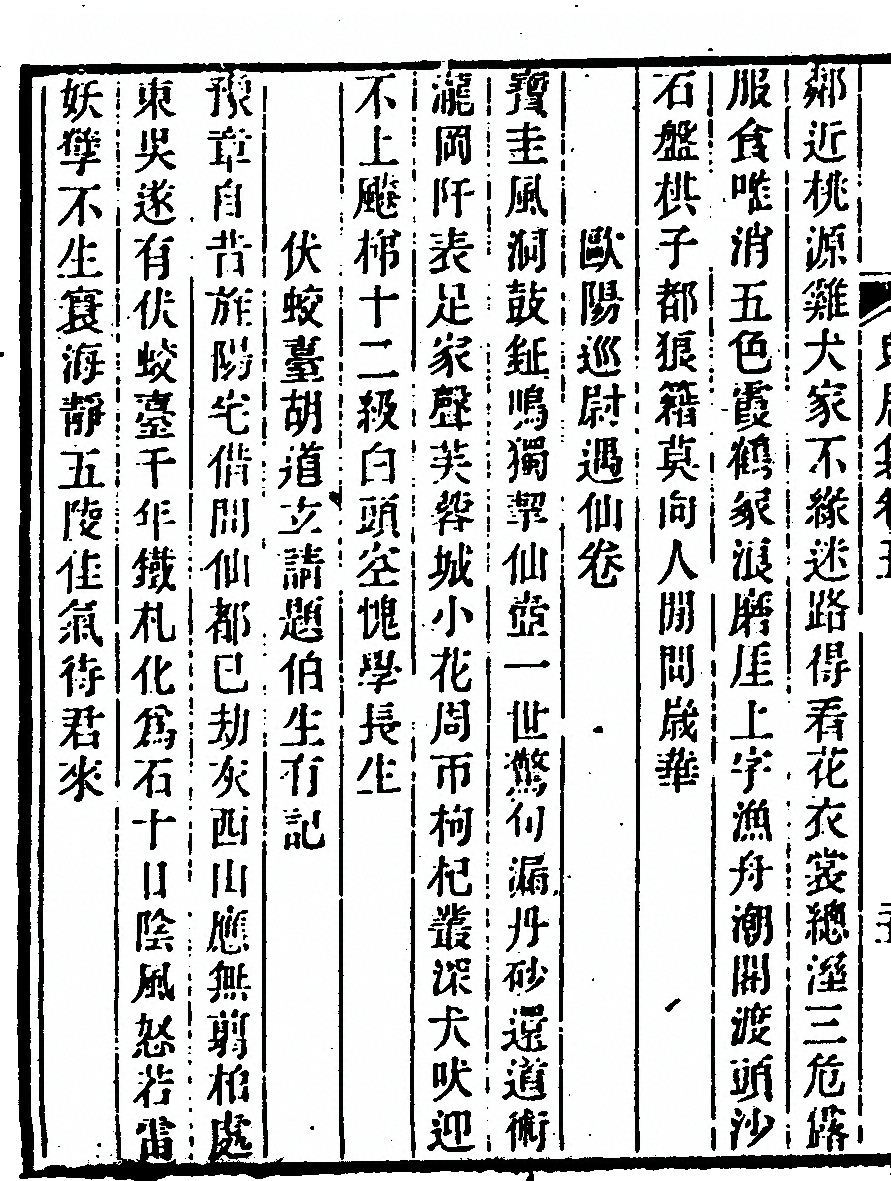 鄰近桃源雞犬家不緣迷路得看花衣裳總溼三危露
服食唯消五色霞鶴冢浪磨厓上字漁舟潮開渡頭沙
石盤棋子都狼籍莫向人閒問歲華
歐陽巡尉遇仙卷
寶圭風洞鼓鉦鳴獨挈仙壺一世驚句漏丹砂還道術
瀧岡阡表足家聲芙蓉城小花周帀枸杞叢深犬吠迎
不上飈梯十二級白頭空愧學長生
伏蛟臺胡道立請題伯生有記
豫章自昔旌陽宅借問仙都已劫灰西山應無翦柏處
東吳遂有伏蛟臺千年鐵札化爲石十日陰風怒若雷
妖孽不生寰海靜五陵佳氣待君來